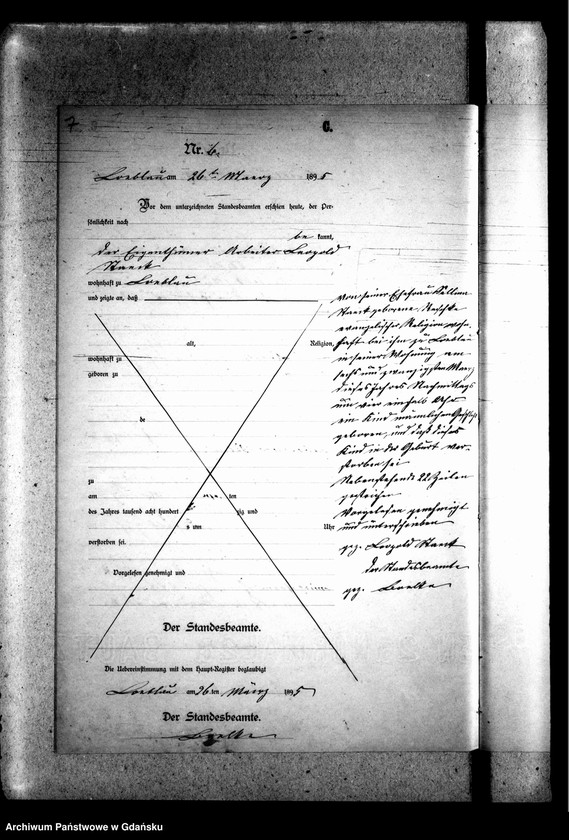 7
C.
Nr. 6.
Loeblau am 26ten Maerz 1895
Vor dem unterzeichneten Standesbeamten erschien heute, der Per-
sönlichkeit nach
be kannt,
der Eigenthümer Arbeiter Leopold
wohnhaft zu Loeblau
und zeigte an, daß
alt, Religion,
wohnhaft zu
geboren zu
de
zu
am ten
des Jahres tausend acht hundert zig und
um Uhr
verstorben sei.
Vorgelesen, genehmigt und
von seiner Ehefrau
geborene
evangelischer Religion, wohn
haft bei ihm zu Loeblau
in seiner Wohnung am
sechs und zwanzigsten Maerz
dieses Jahres Nachmittags
um vier einhalb Uhr
ein Kind männlichen Geschlechts
geboren, und daß dieses
Kind in der Geburt ver-
storben sei
Nebenstehende 22 Zeilen
gestrichen
Vorgelesen genehmigt
und unterschrieben
gez. Leopold
Der Standesbeamte
gez.
Der Standesbeamte.
Die Uebereinstimmung mit dem Haupt-Register beglaubigt
Loeblau am 26.ten März 1895
Der Standesbeamte.
Archiwum Państwowe w Gdańsku